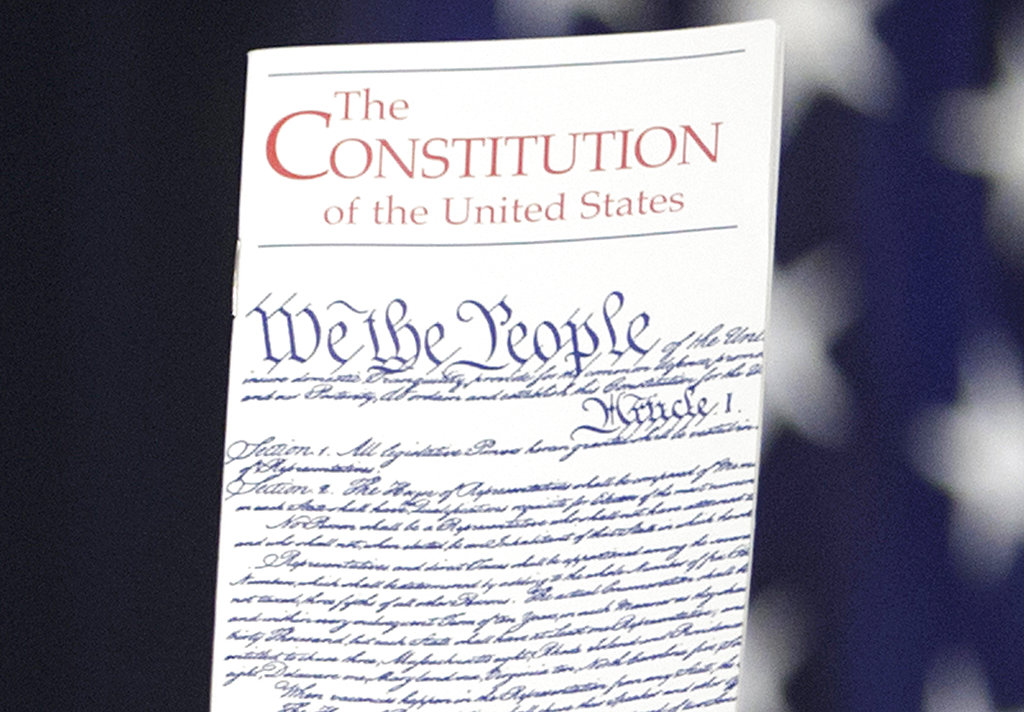 The
CONSTITUTION
of the United States
We the People of the Uni
insure domestic Tranquility, provide for the common defence, promo
and our Posterity, do ordain and establish this Constitution for the U
Article. I.
Section. 1. All legislative Powers herein granted shall be vested in
of Representatives.
Section. 2. The House of Representatives shall be composed of Mem
in each State shall have the Qualifications requisite for Electors of the most numerous
No Person shall be a Representative who shall not have attained to
and who shall not, when elected, be an Inhabitant of that State in which he shall
Representatives and direct Taxes shall be apportioned among the several
Numbers, which shall be determined by adding to the whole Number of free
not taxed, three fifths of all other Persons. The actual Enumeration shall be
and within every subsequent Term of ten Years, in such Manner as they shall
thirty Thousand, but each State shall have at Least one Representative; and
entitled to chuse three, Massachusetts eight, Rhode Island and Providence
eight, Delaware one, Maryland six, Virginia ten, North Carolina five, Sou
When vacancies happen in the Representation from any State, the
The House of Representatives shall chuse their Speaker and other